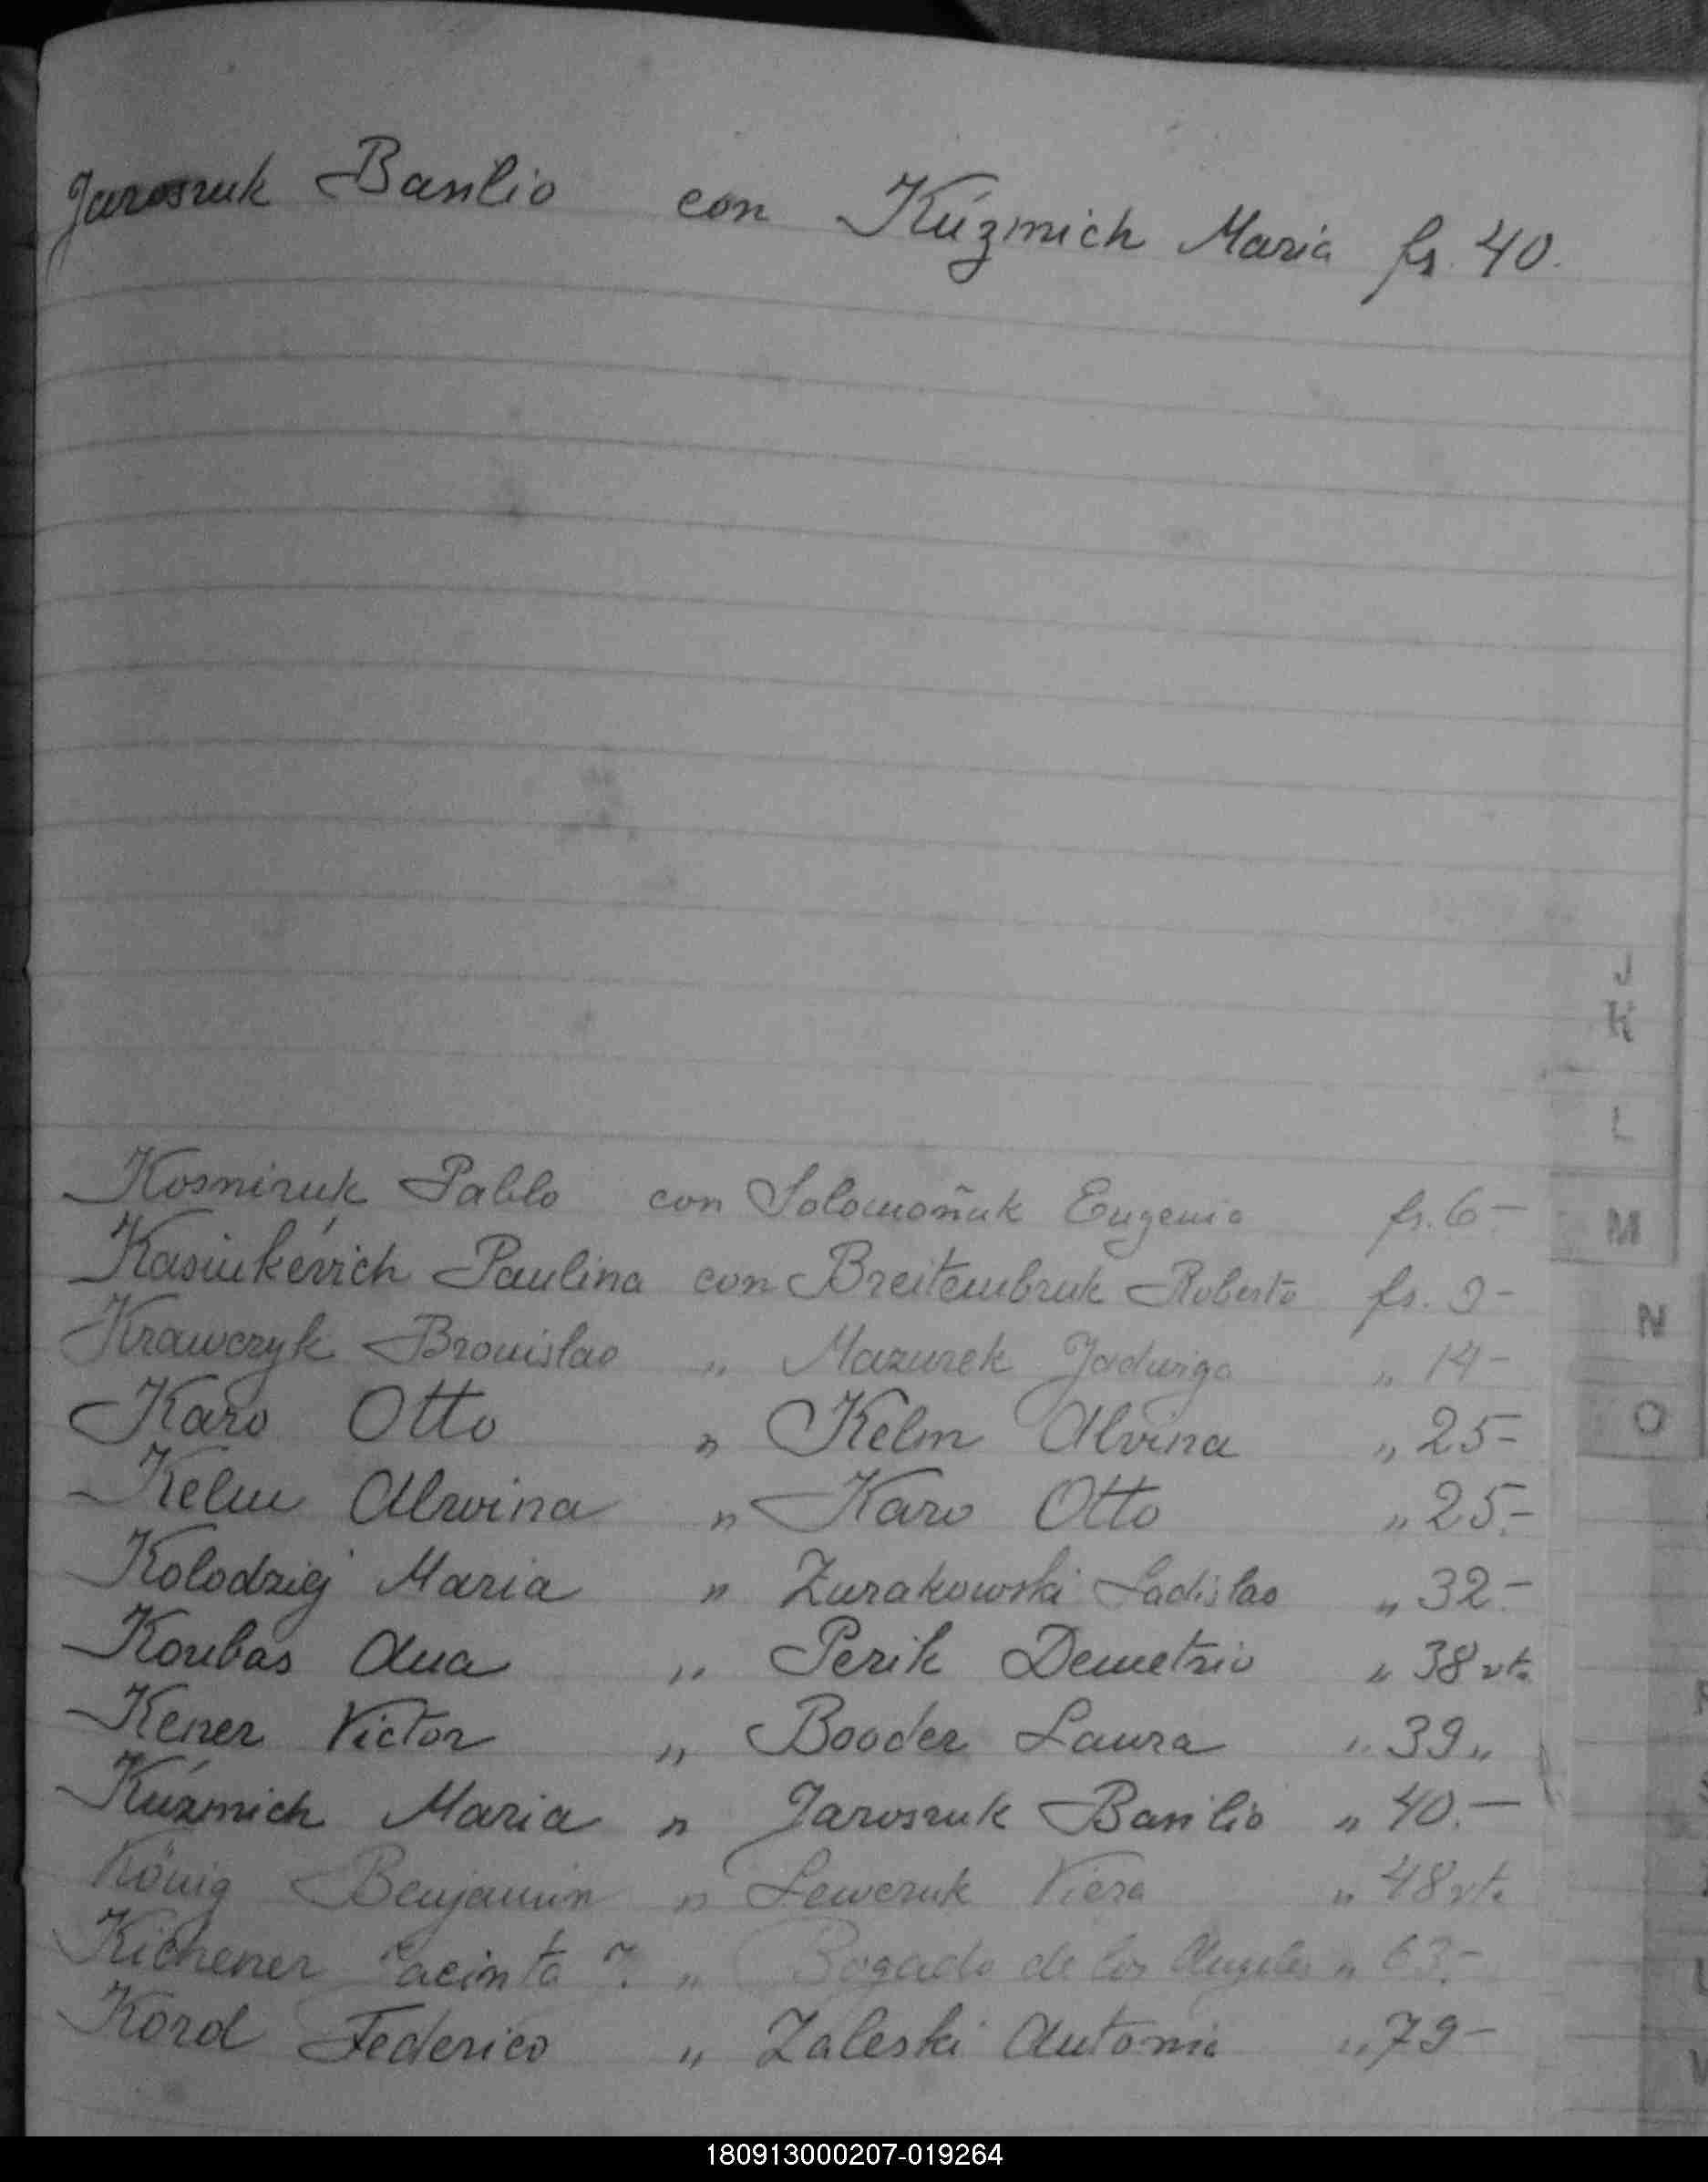 Jaroszuk Basilio con Kúzmich Maria fs. 40.
J
K
L
M
N
O
Kosmiruk Pablo con Solomoñuk Eugenia fs. 6.-
Kasiukévich Paulina con Breitembruk Roberto fs. 9-
Krawczyk Bronislao " Mazurek Jadwiga " 14-
Karo Otto " Kelm Alvina " 25-
Kelm Alwina " Karo Otto " 25.-
Kolodziej Maria " Zurakowski Ladislao " 32.-
Koubas Ana " Perik Demetrio " 38 vta
Kener Victor " Booder Laura " 39 "
Kuźmich Maria " Jaroszuk Basilio " 40.-
König Benjamin " Lewczuk Viera " 48 vta
Kichener Jacinta ?. " Bogado de los Angeles " 63.-
Kord Federico " Zaleski Antonia " 79-
180913000207-019264